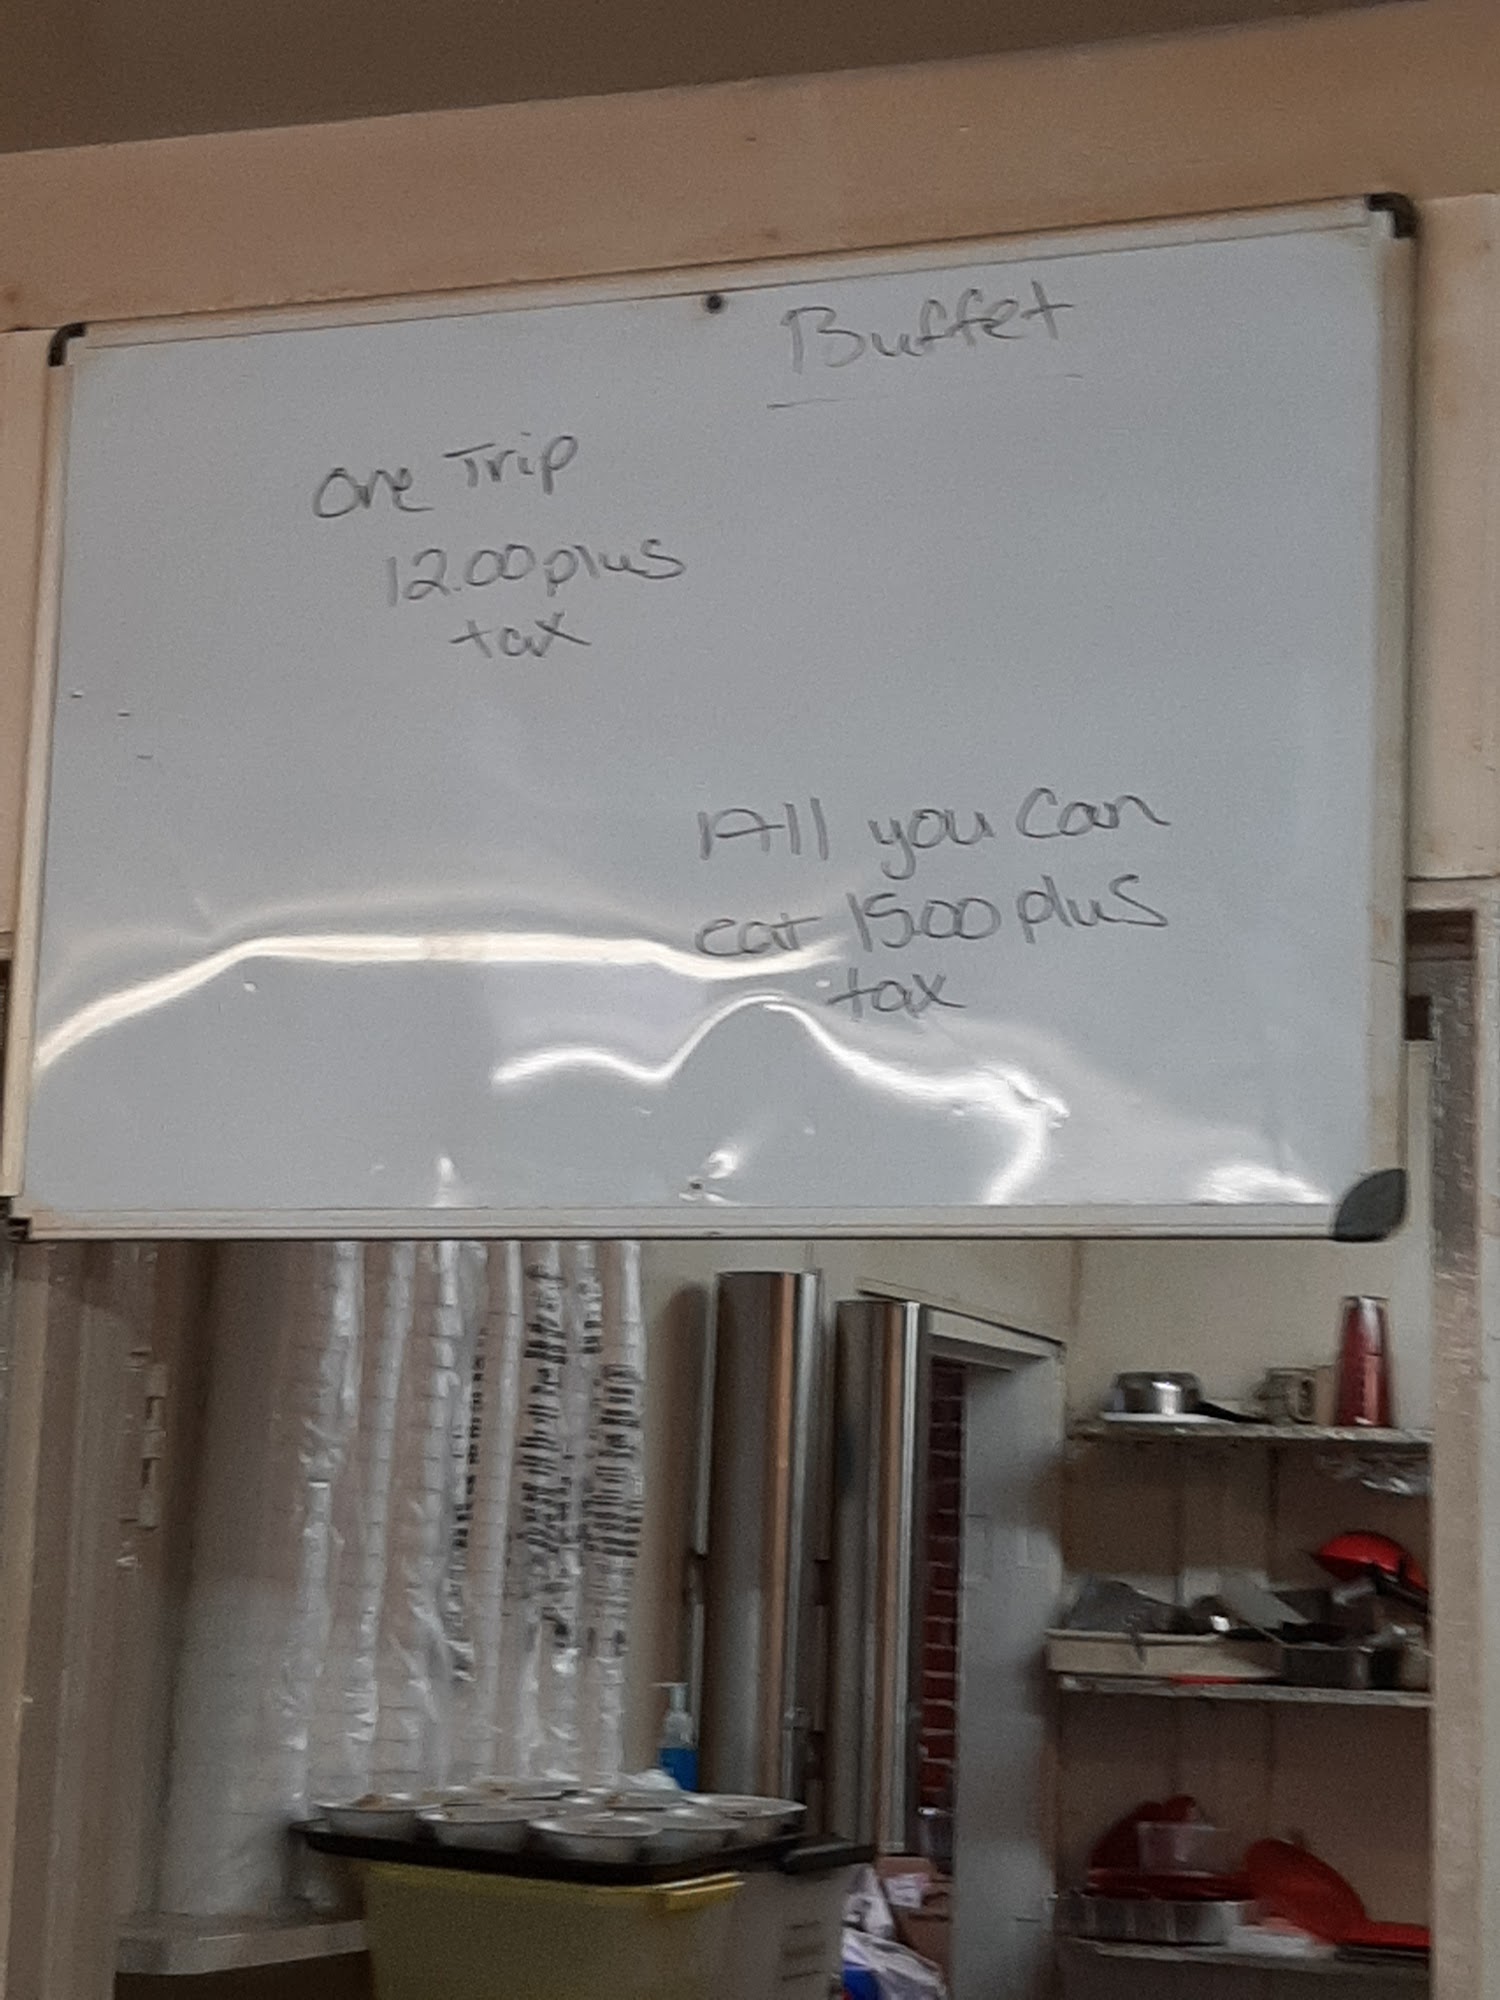 Buffet
One Trip
12.00 plus
tax
All you can
eat 15.00 plus
tax